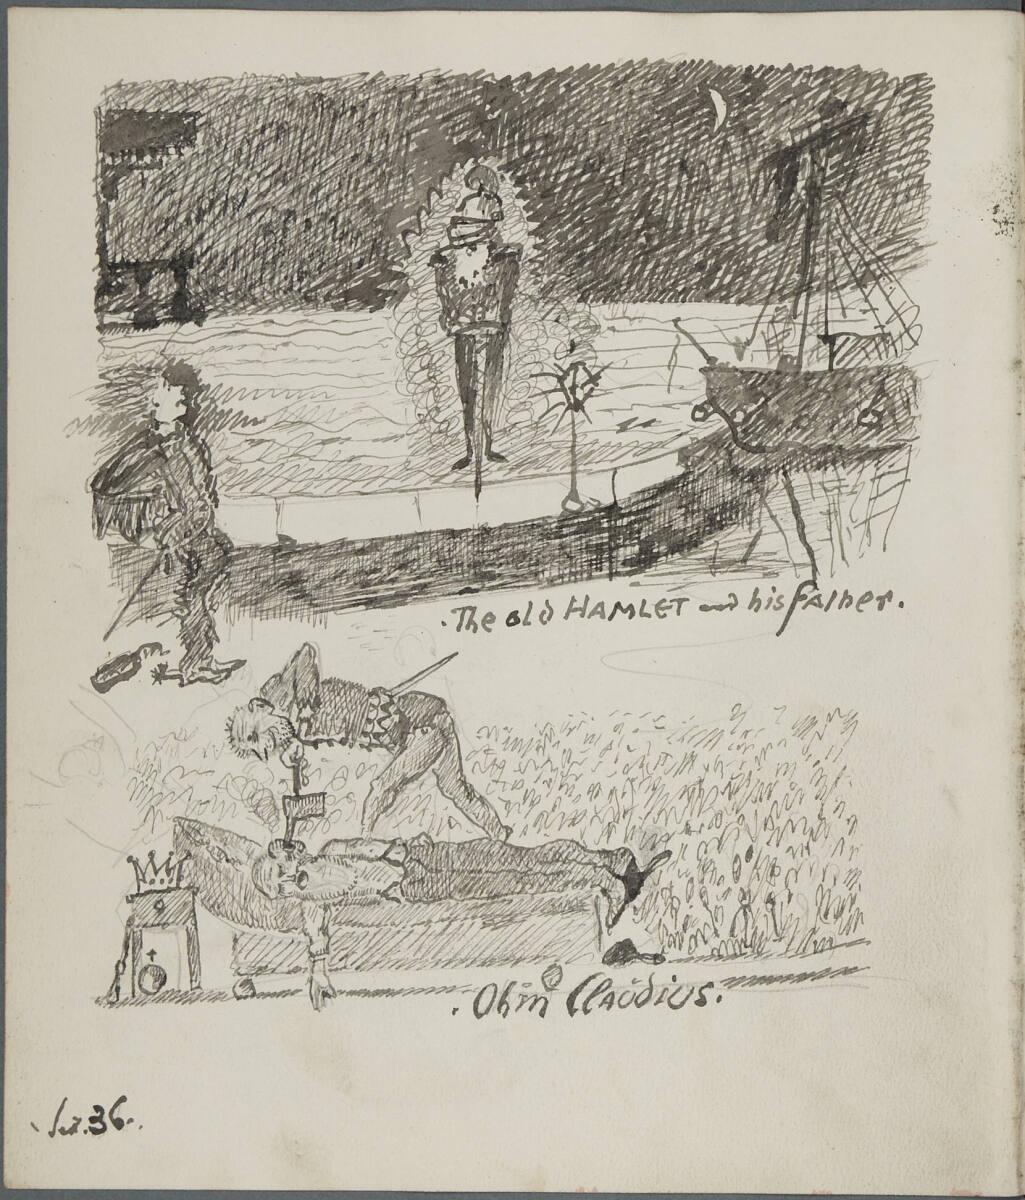 .The old HAMLET and his father.
. Ohm Claudius.
36.